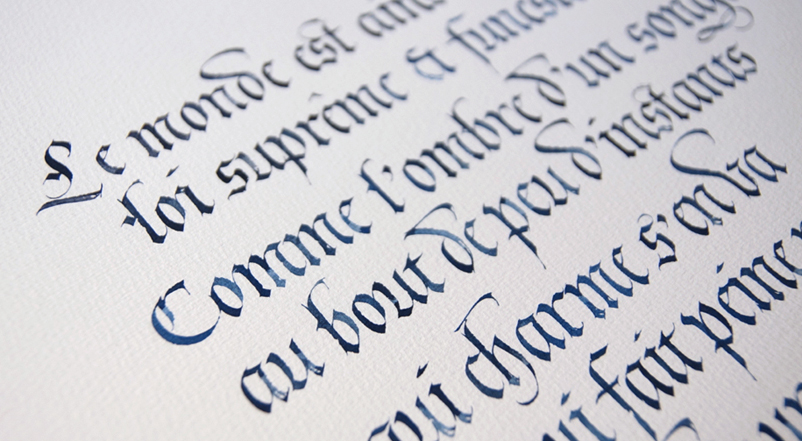 Le monde est
loi suprême &
Comme l'ombre d'un songe
au bout de peu d'instants
qui charme s'en va
fait peine